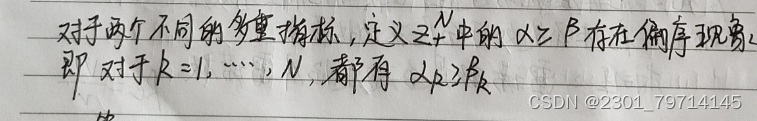 对于两个不同的多重指标,定义Z₊ᴺ中的 α≥β存在偏序现象
即 对于k=1,……,N,都有 αₖ≥βₖ
CSDN @2301_79714145